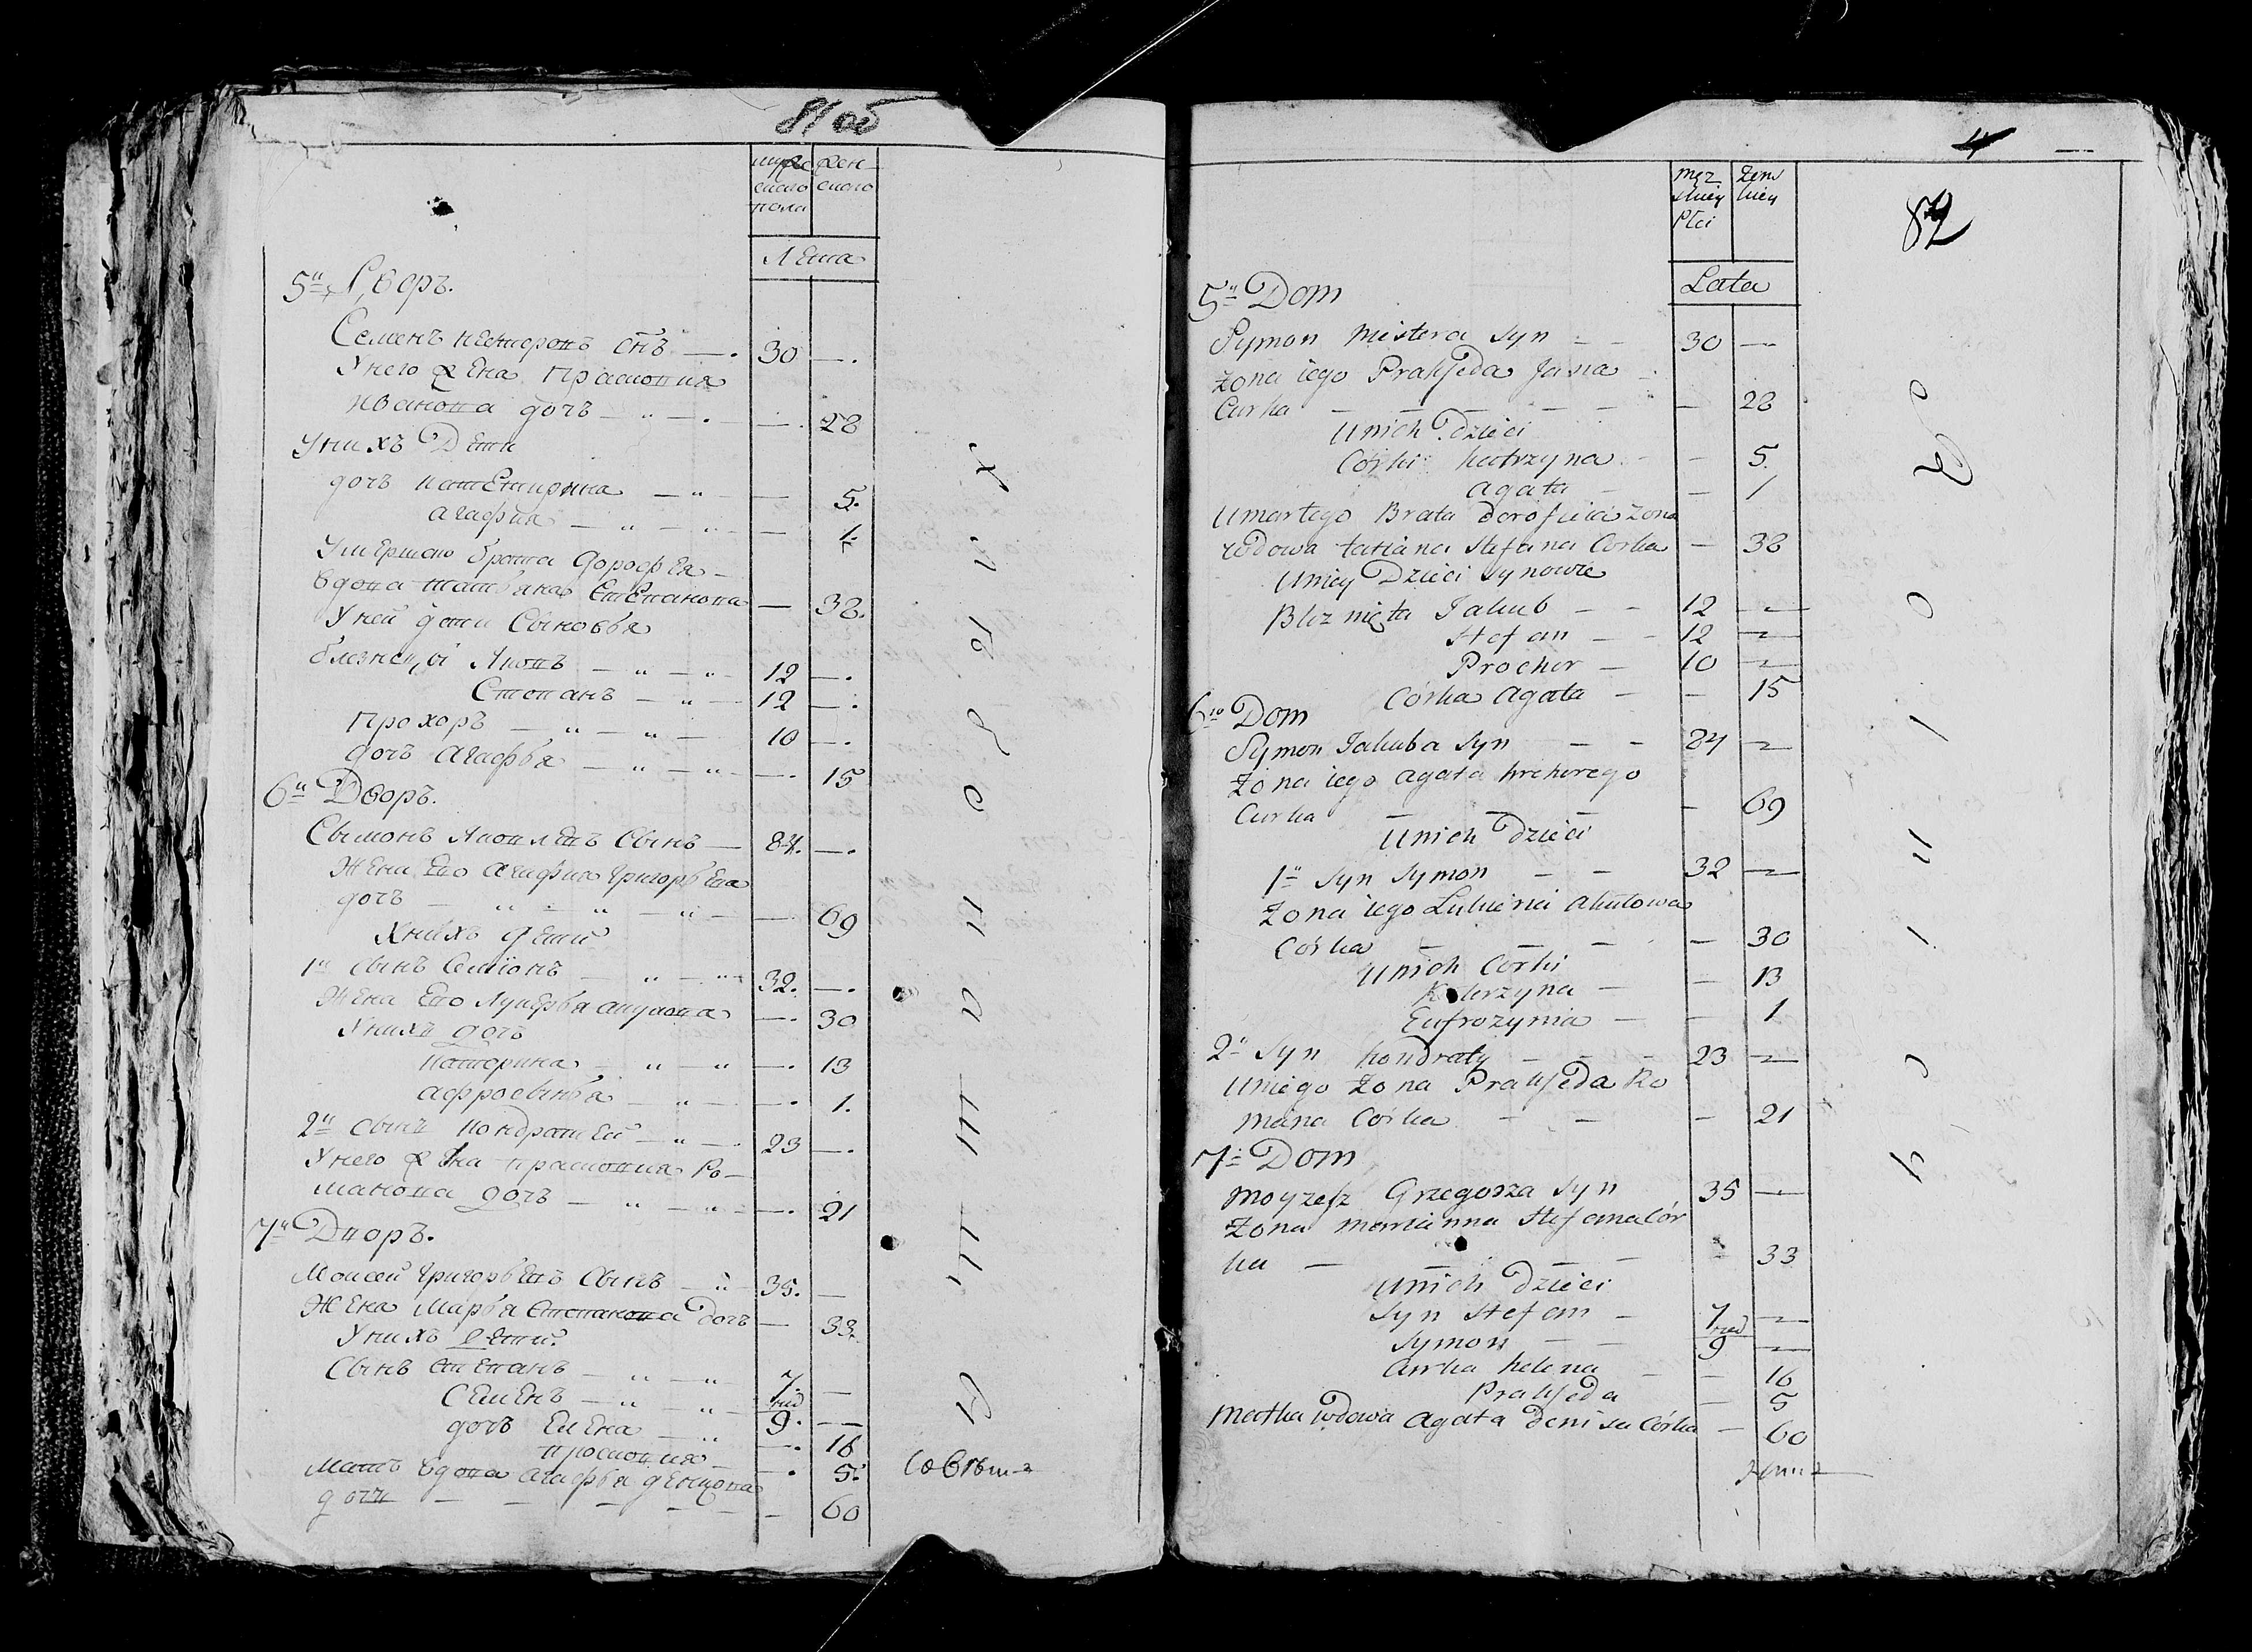 81 об
муже
скаго
пола
жен
скаго
Лета
5й Дворъ.
Семенъ Нестеровъ снъ — 30 —
У него жена Прасковия
Иванова дочъ — — 28
У нихъ Дети
дочъ Катерина — — 5.
Агафия — — 1.
Умершаго брата Дорофея
вдова татьяна Степанова — 38.
У ней дети Сыновья
близнецы Яковъ — 12 —
Степанъ — 12 —
Прохоръ — 10 —
дочъ Агафья — — 15
6й Дворъ.
Сымонъ Яковлевъ Сынъ — 84. —
Жена Ево Агафия Григорьева
дочъ — — 69
У нихъ дети
1й сынъ Семионъ — 32. —
Жена Ево Лукерья — 30
У нихъ дочъ
Катерина — — 13
Афросинья — — 1.
2й сынъ Кондратей — 23 —
У него жена прасковия Ро-
манова дочъ — — 21
7й Дворъ.
Моисей Григорьевъ Сынъ — 35. —
Жена Марья Степанова дочъ — 33.
У нихъ дети.
Сынъ Степанъ — 7 —
Семенъ — 9. —
дочъ Елена — — 16
прасковия — — 5.
Мать вдова Агафья денисова
дочъ — — 60
4
82
męz
kiey
Płci
żens
kiey
Lata
5ty Dom
Symon Nestera syn — 30 —
żona iego Praxeda Jana
Curka — — 28
U nich dzieci
Córki Katrzyna — — 5.
Agata — — 1
Umarłego Brata Dorofieia żona
wdowa tatiana Stefana Corka — 38
U niey Dzieci synowie
Bliznięta Jakub — 12 —
Stefan — 12 —
Prochor — 10 —
Córka Agata — — 15
6to Dom
Symon Jakuba syn — 84 —
Żona iego Agata hrehorego
Curka — — 69
U nich dzieci
1y syn Symon — 32 —
Żona iego
Córka — — 30
U nich Corki
Katerzyna — — 13
Eufrozynia — — 1
2y syn Kondraty — 23 —
U niego żona Praxeda Ro
mana Córka — — 21
7y Dom
Moyzesz Grzegorza syn 35 —
Żona Marianna Stefana Cór
ka — — 33
U nich dzieci
Syn Stefan — 7 —
Symon — 9 —
Curka helena — — 16
Praxeda — 5
Matka wdowa Agata denisa Córka — 60